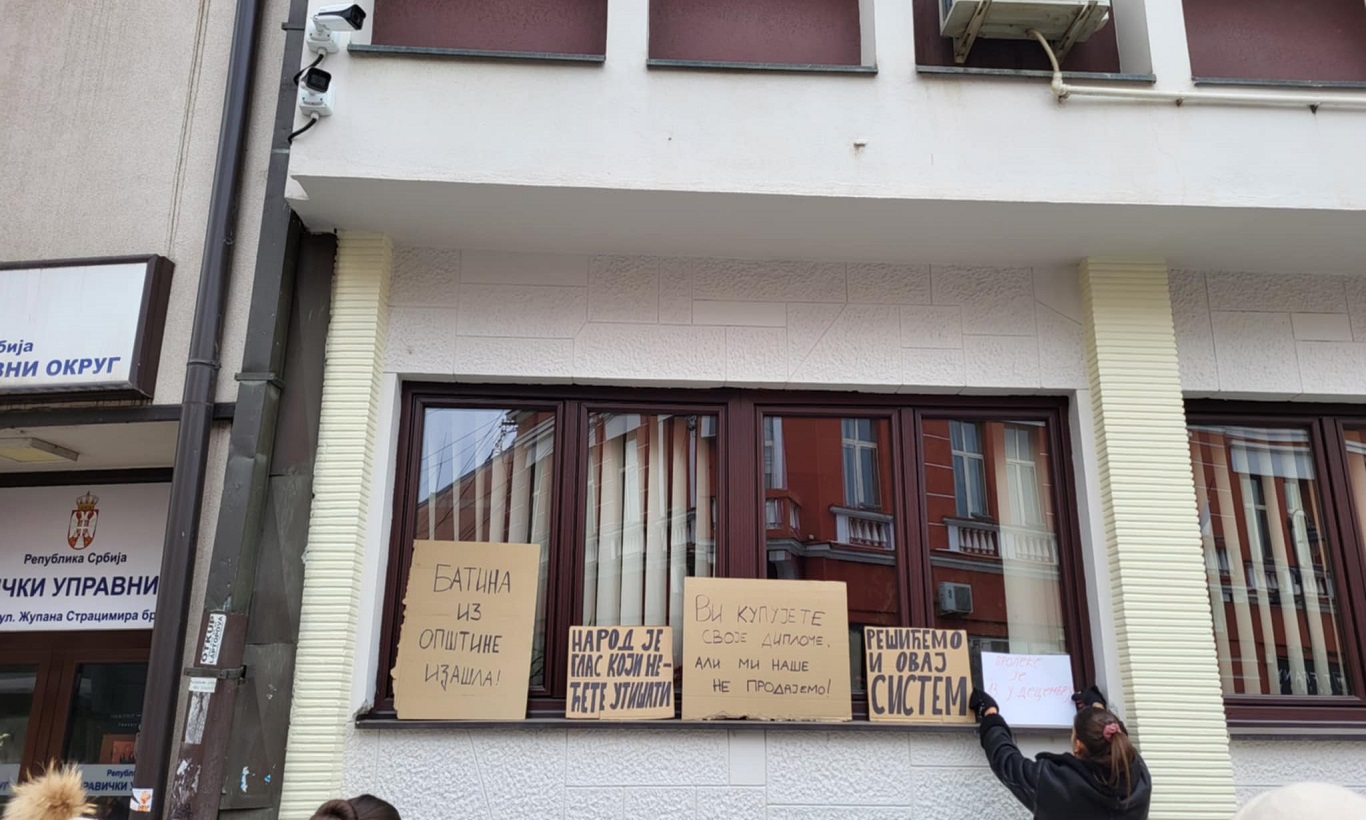 бија
ВНИ ОКРУГ
Република Србија
ЧКИ УПРАВНИ
ул. Жупана Страцимира бр
ОТКУП
БАТИНА
ИЗ
ОПШТИНЕ
ИЗАШЛА!
НАРОД ЈЕ
ГЛАС КОЈИ НЕ-
ЋЕТЕ УТИШАТИ
ВИ КУПУЈЕТЕ
СВОЈЕ ДИПЛОМЕ,
АЛИ МИ НАШЕ
НЕ ПРОДАЈЕМО!
РЕШИЋЕМО
И ОВАЈ
СИСТЕМ
ПРОЛЕЋЕ
ЈЕ
У ДЕЦЕМБРУ